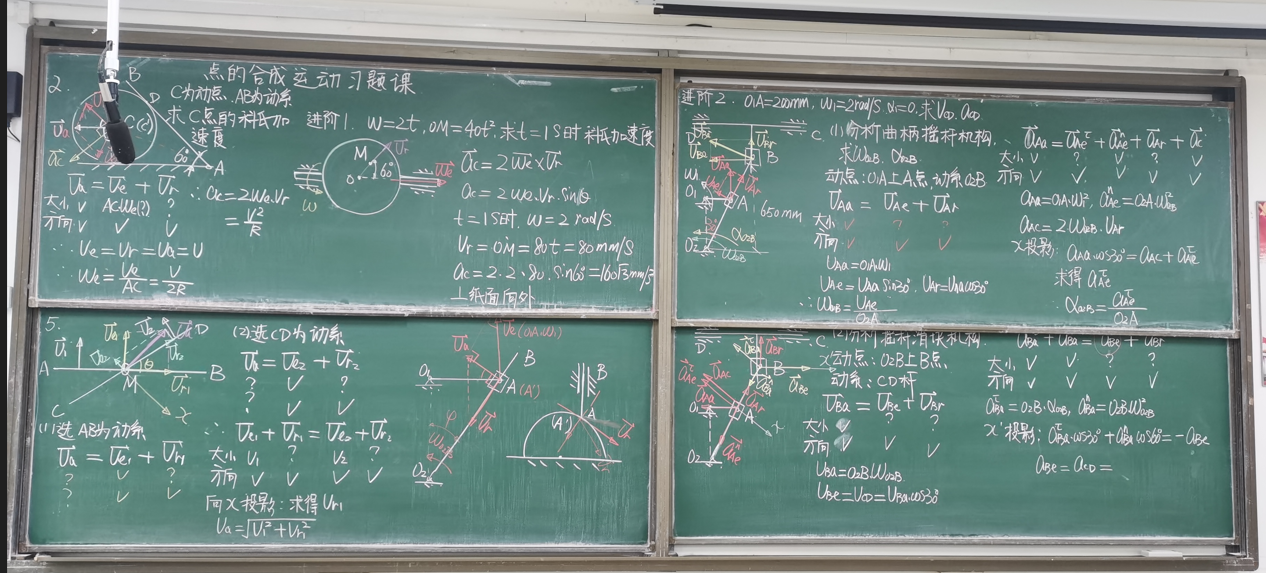 点的合成运动习题课
2.
B
D
C为动点.AB为动系
求C点的科氏加
速度
60°
A
v⃗a = v⃗e + v⃗r
大小 √ AC·ωe(?) ?
方向 √ √ √
∴ ve = vr = va = v
∴ ωe = ve/AC = v/2R
∴ ac = 2ωe·vr
= v²/R
进阶1. ω=2t, OM=40t². 求t=1s时 科氏加速度
M
v⃗r
O
60°
v⃗e
ω
a⃗c = 2ω⃗e×v⃗r
ac = 2ωe·vr·sinθ
t=1s时, ω=2 rad/s
vr = OM = 80t = 80mm/s
ac = 2·2·80·sin60°=160√3mm/s²
⊥纸面向外
5.
v⃗1
A
M
B
C
D
θ
v⃗r1
x
(1)选AB为动系
v⃗a = v⃗e1 + v⃗r1
? √ ?
? √ √
(2)选CD为动系
v⃗a = v⃗e2 + v⃗r2
? √ ?
? √ √
∴ v⃗e1 + v⃗r1 = v⃗e2 + v⃗r2
大小 v1 ? v2 ?
方向 √ √ √ √
向x投影:求得vr1
va = √(v1²+vr1²)
v⃗e(O1A·ω1)
v⃗a
B
O1
A(A')
φ
v⃗r
O2
B
A
(A')
v⃗r
进阶2. O1A=200mm, ω1=2rad/s, α1=0. 求vCD, aCD
D
C
B
ω1
O1
A
650mm
30°
O2
αO2B
ωO2B
(1)分析曲柄摇杆机构.
求ωO2B. αO2B.
动点:O1A上A点.动系O2B
v⃗Aa = v⃗Ae + v⃗Ar
大小 √ ? ?
方向 √ √ √
vAa=O1A·ω1
vAe=vAa sin30°. vAr=vAa cos30°
∴ ωO2B = vAe/O2A
a⃗Aa = a⃗Aeᵗ + a⃗Aeⁿ + a⃗Ar + a⃗c
大小 √ ? √ ? √
方向 √ √ √ √ √
aAa=O1A·ω1², aAeⁿ=O2A·ωO2B²
aAC=2ωO2B·vAr
x投影: aAa·cos30°=aAC+aAeᵗ
求得aAeᵗ
αO2B = aAeᵗ/O2A
(2)分析摇杆滑块机构
动点:O2B上B点.
动系:CD杆
v⃗Ba = v⃗Be + v⃗Br
大小 √ ? ?
方向 √ √ √
vBa=O2B·ωO2B
vBe=vCD=vBa·cos30°
D
C
B
O1
A
O2
x
aBaᵗ=O2B·αO2B, aBaⁿ=O2B·ωO2B²
x'投影: aBaᵗ·cos30°+aBaⁿ·cos60°=-aBe
aBe=aCD=